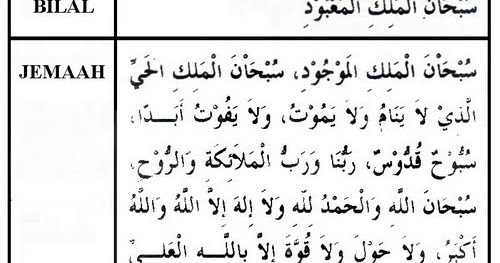 BILAL
سُبْحَانَ الْمَلِكِ الْمَعْبُوْدِ
JEMAAH
سُبْحَانَ الْمَلِكِ الْمَوْجُوْدِ، سُبْحَانَ الْمَلِكِ الْحَيِّ
الَّذِيْ لاَ يَنَامُ وَلاَ يَمُوْتُ، وَلاَ يَفُوْتُ أَبَــدًا،
سُبُّوْحٌ قُدُّوْسٌ، رَبُّنَا وَرَبُّ الْمَلاَئِكَةِ وَالرُّوْحِ،
سُبْحَانَ اللَّهِ وَالْحَمْدُ لِلَّهِ وَلاَ إِلهَ إِلاَّ اللَّهُ وَاللَّهُ
أَكْبَرُ، وَلاَ حَوْلَ وَلاَ قُوَّةَ إِلاَّ بِاللَّــهِ الْعَلِــيِّ